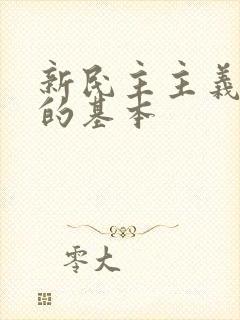 新民主主義
的基本
零大